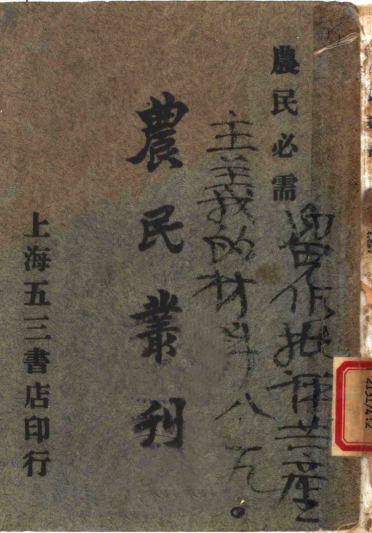 農民必需
留作批評共產
主義的材料 八、九。
農民叢刊
上海五三書店印行